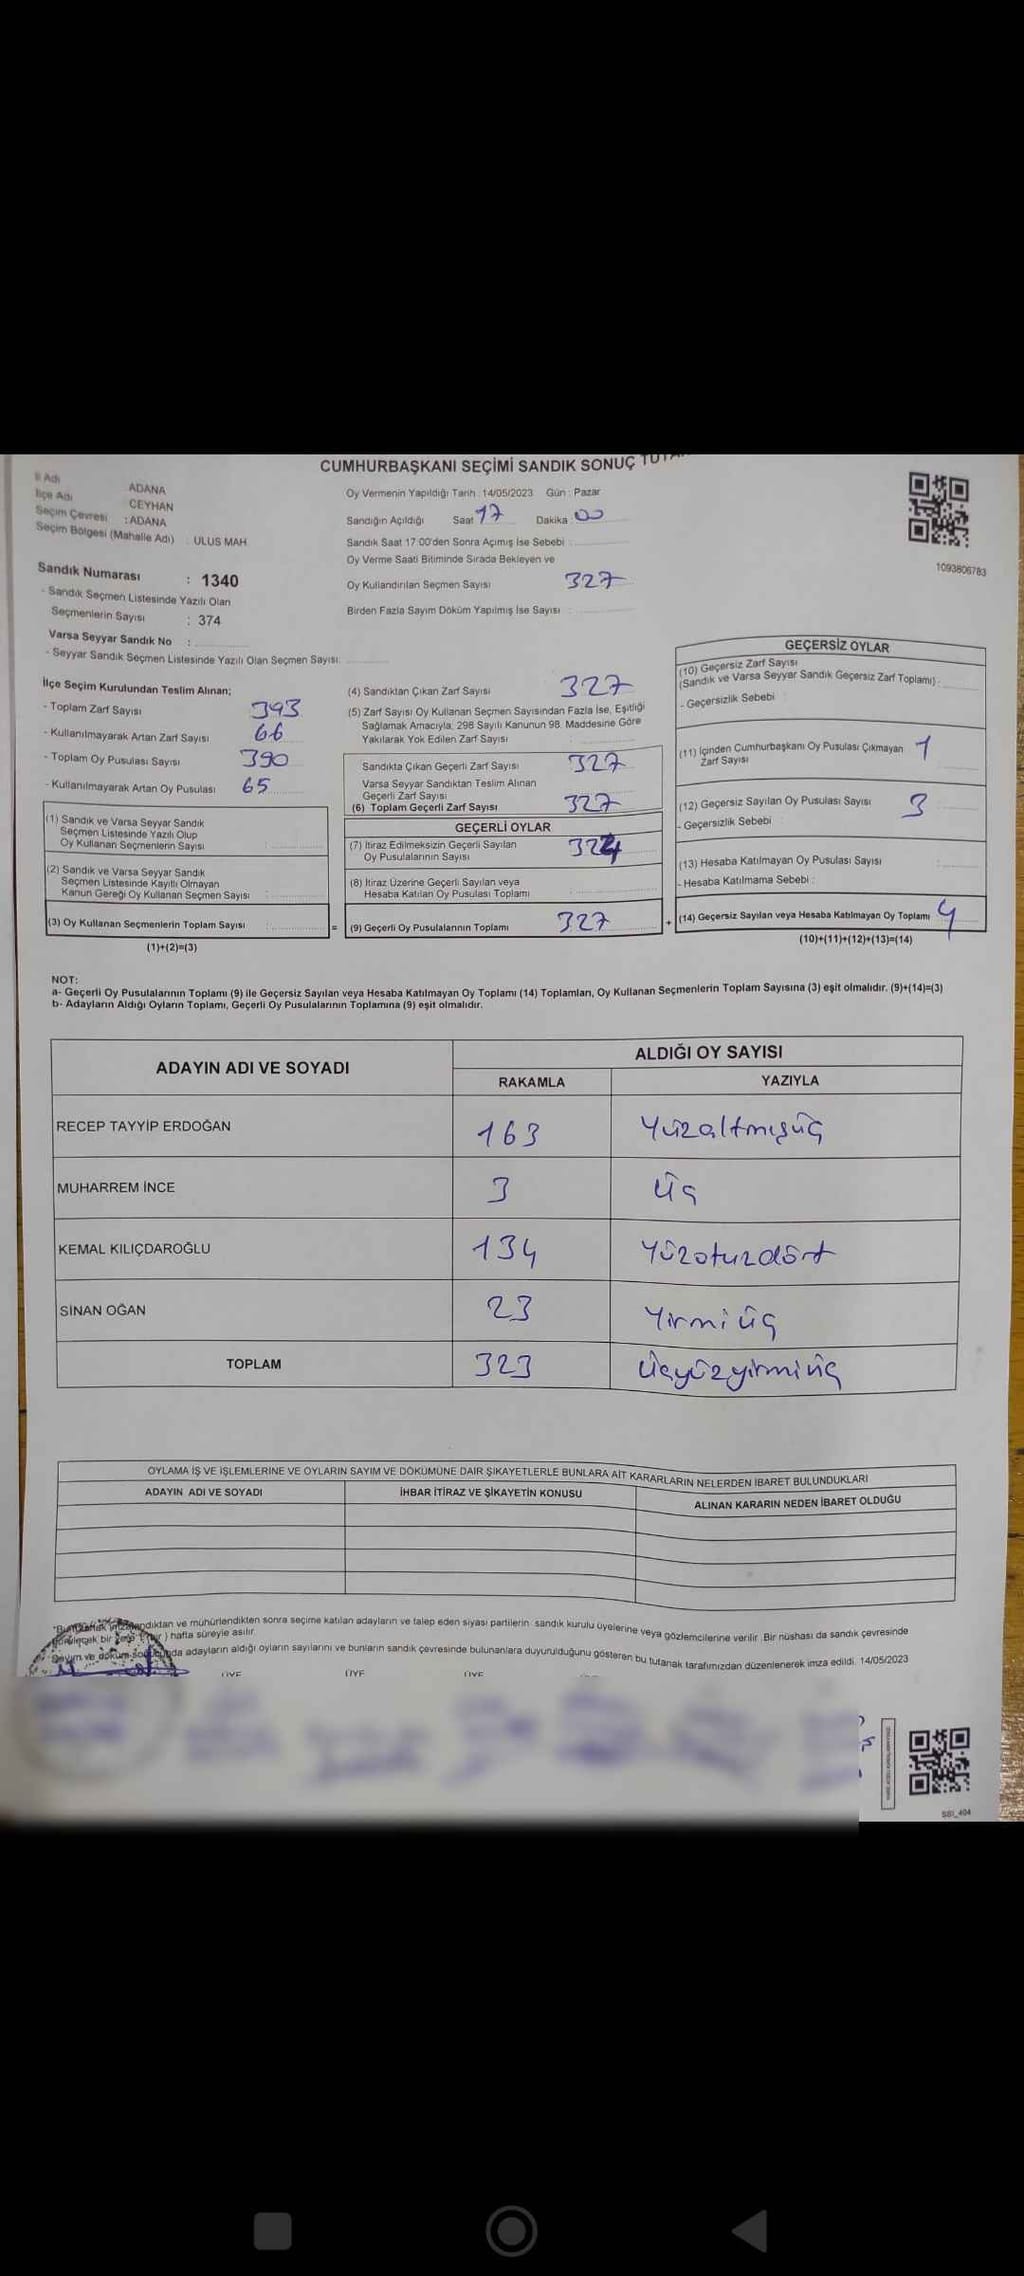 CUMHURBAŞKANI SEÇİMİ SANDIK SONUÇ
İl Adı ADANA
İlçe Adı CEYHAN
Seçim Çevresi : ADANA
Seçim Bölgesi (Mahalle Adı) : ULUS MAH.
Oy Vermenin Yapıldığı Tarih : 14/05/2023 Gün : Pazar
Sandığın Açıldığı Saat 17 Dakika : 00
Sandık Saat 17:00'den Sonra Açımış İse Sebebi :
Oy Verme Saati Bitiminde Sırada Bekleyen ve
Oy Kullandırılan Seçmen Sayısı 327
Birden Fazla Sayım Döküm Yapılmış İse Sayısı :
1093806783
Sandık Numarası : 1340
- Sandık Seçmen Listesinde Yazılı Olan
Seçmenlerin Sayısı : 374
Varsa Seyyar Sandık No :
- Seyyar Sandık Seçmen Listesinde Yazılı Olan Seçmen Sayısı:
İlçe Seçim Kurulundan Teslim Alınan;
- Toplam Zarf Sayısı 393
- Kullanılmayarak Artan Zarf Sayısı 66
- Toplam Oy Pusulası Sayısı 390
- Kullanılmayarak Artan Oy Pusulası 65
(1) Sandık ve Varsa Seyyar Sandık
Seçmen Listesinde Yazılı Olup
Oy Kullanan Seçmenlerin Sayısı :
(2) Sandık ve Varsa Seyyar Sandık
Seçmen Listesinde Kayıtlı Olmayan
Kanun Gereği Oy Kullanan Seçmen Sayısı :
(3) Oy Kullanan Seçmenlerin Toplam Sayısı :
(1)+(2)=(3)
(4) Sandıktan Çıkan Zarf Sayısı 327
(5) Zarf Sayısı Oy Kullanan Seçmen Sayısından Fazla İse, Eşitliği
Sağlamak Amacıyla, 298 Sayılı Kanunun 98. Maddesine Göre
Yakılarak Yok Edilen Zarf Sayısı :
Sandıkta Çıkan Geçerli Zarf Sayısı 327
Varsa Seyyar Sandıktan Teslim Alınan
Geçerli Zarf Sayısı
(6) Toplam Geçerli Zarf Sayısı 327
GEÇERLİ OYLAR
(7) İtiraz Edilmeksizin Geçerli Sayılan
Oy Pusulalarının Sayısı 324
(8) İtiraz Üzerine Geçerli Sayılan veya
Hesaba Katılan Oy Pusulası Toplamı :
= (9) Geçerli Oy Pusulalarının Toplamı 327 +
GEÇERSİZ OYLAR
(10) Geçersiz Zarf Sayısı
(Sandık ve Varsa Seyyar Sandık Geçersiz Zarf Toplamı) :
- Geçersizlik Sebebi :
(11) İçinden Cumhurbaşkanı Oy Pusulası Çıkmayan 1
Zarf Sayısı
(12) Geçersiz Sayılan Oy Pusulası Sayısı 3
- Geçersizlik Sebebi :
(13) Hesaba Katılmayan Oy Pusulası Sayısı :
- Hesaba Katılmama Sebebi :
(14) Geçersiz Sayılan veya Hesaba Katılmayan Oy Toplamı 4
(10)+(11)+(12)+(13)=(14)
NOT:
a- Geçerli Oy Pusulalarının Toplamı (9) ile Geçersiz Sayılan veya Hesaba Katılmayan Oy Toplamı (14) Toplamları, Oy Kullanan Seçmenlerin Toplam Sayısına (3) eşit olmalıdır. (9)+(14)=(3)
b- Adayların Aldığı Oyların Toplamı, Geçerli Oy Pusulalarının Toplamına (9) eşit olmalıdır.
ADAYIN ADI VE SOYADI ALDIĞI OY SAYISI
RAKAMLA YAZIYLA
RECEP TAYYİP ERDOĞAN 163 Yüzaltmışüç
MUHARREM İNCE 3 üç
KEMAL KILIÇDAROĞLU 134 Yüzotuzdört
SİNAN OĞAN 23 Yirmi üç
TOPLAM 323 üçyüzyirmiüç
OYLAMA İŞ VE İŞLEMLERİNE VE OYLARIN SAYIM VE DÖKÜMÜNE DAİR ŞİKAYETLERLE BUNLARA AİT KARARLARIN NELERDEN İBARET BULUNDUKLARI
ADAYIN ADI VE SOYADI İHBAR İTİRAZ VE ŞİKAYETİN KONUSU ALINAN KARARIN NEDEN İBARET OLDUĞU
ve mühürlendikten sonra seçime katılan adayların ve talep eden siyasi partilerin sandık kurulu üyelerine veya gözlemcilerine verilir. Bir nüshası da sandık çevresinde
hafta süreyle asılır.
adayların aldığı oyların sayılarını ve bunların sandık çevresinde bulunanlara duyurulduğunu gösteren bu tutanak tarafımızdan düzenlenerek imza edildi. 14/05/2023
ÜYE ÜYE ÜYE
SSI_404